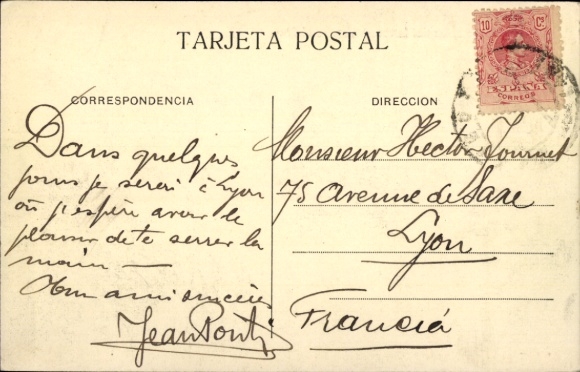 TARJETA POSTAL
10 Cs
ESPAÑA
CORREOS
CORRESPONDENCIA
DIRECCION
Dans quelques
jours je serai à Lyon
où j'espère avoir le
plaisir de te serrer la
main —
Ton ami sincère
Jean
Monsieur Hector Tournet
75 Avenue de Saxe
Lyon
Francia